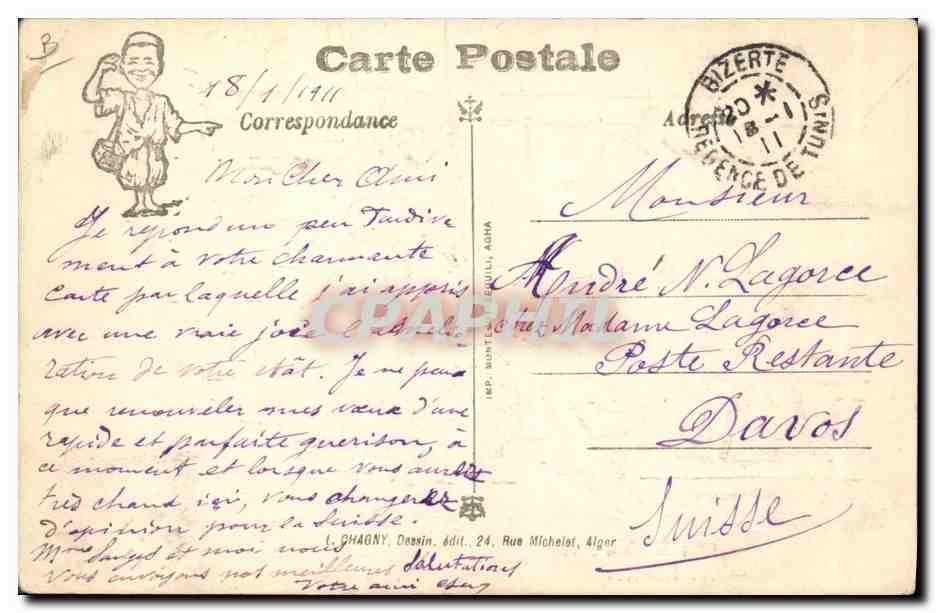 B
Carte Postale
18/1/1911
Correspondance
Mon Cher Ami
Je répond un peu Tardive
ment à votre charmante
carte par laquelle j'ai appris
avec une vraie joie l'amélio
ration de votre état. Je ne peux
que renouveler mes vœux d'une
rapide et parfaite guerison, à
ce moment et lorsque vous aurez
tres chaud ici, vous changerez
d'opinion pour la Suisse.
Mme et moi nous
vous envoyons nos meilleures Salutations
Votre ami
IMP. AGHA
BIZERTE
20 *
18 -1
11
REGENCE DE TUNIS
Adresse
Monsieur
André N. Lagorce
chez Madame Lagorce
Poste Restante
Davos
Suisse
L. CHAGNY, Dessin. édit., 24, Rue Michelet, Alger
CPAPHIL